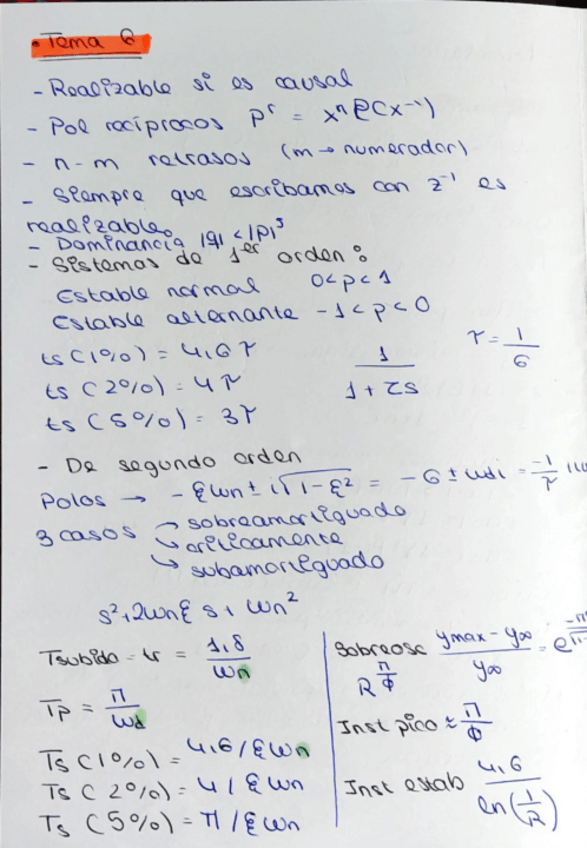 • Tema 6
- Realizable si es causal
- Pol recíprocos pʳ = xⁿ P(x⁻¹)
- n-m retrasos (m → numerador)
- Siempre que escribamos con z⁻¹ es
realizable.
- Dominancia |q| < |p|³
- Sistemas de 1er orden:
Estable normal 0<p<1
Estable alternante -1<p<0
ts (1%) = 4,6 τ
τ = 1/6
ts (2%) = 4 τ
1/(1+τs)
ts (5%) = 3τ
- De segundo orden
Polos → -ξwn ± i√(1-ξ²) = -6 ± wdi = -1/τ
3 casos → sobreamortiguado
↳ críticamente
↳ subamortiguado
s²+2wnξ s + wn²
Tsubida - tr = 1,8/wn
Tp = π/wd
Ts (1%) = 4,6/ξwn
Ts (2%) = 4/ξwn
Ts (5%) = π/ξwn
Sobreosc (ymax - y∞)/y∞ = e
R^(π/Φ)
Inst pico ≈ π/Φ
Inst estab 4,6/ln(1/R)